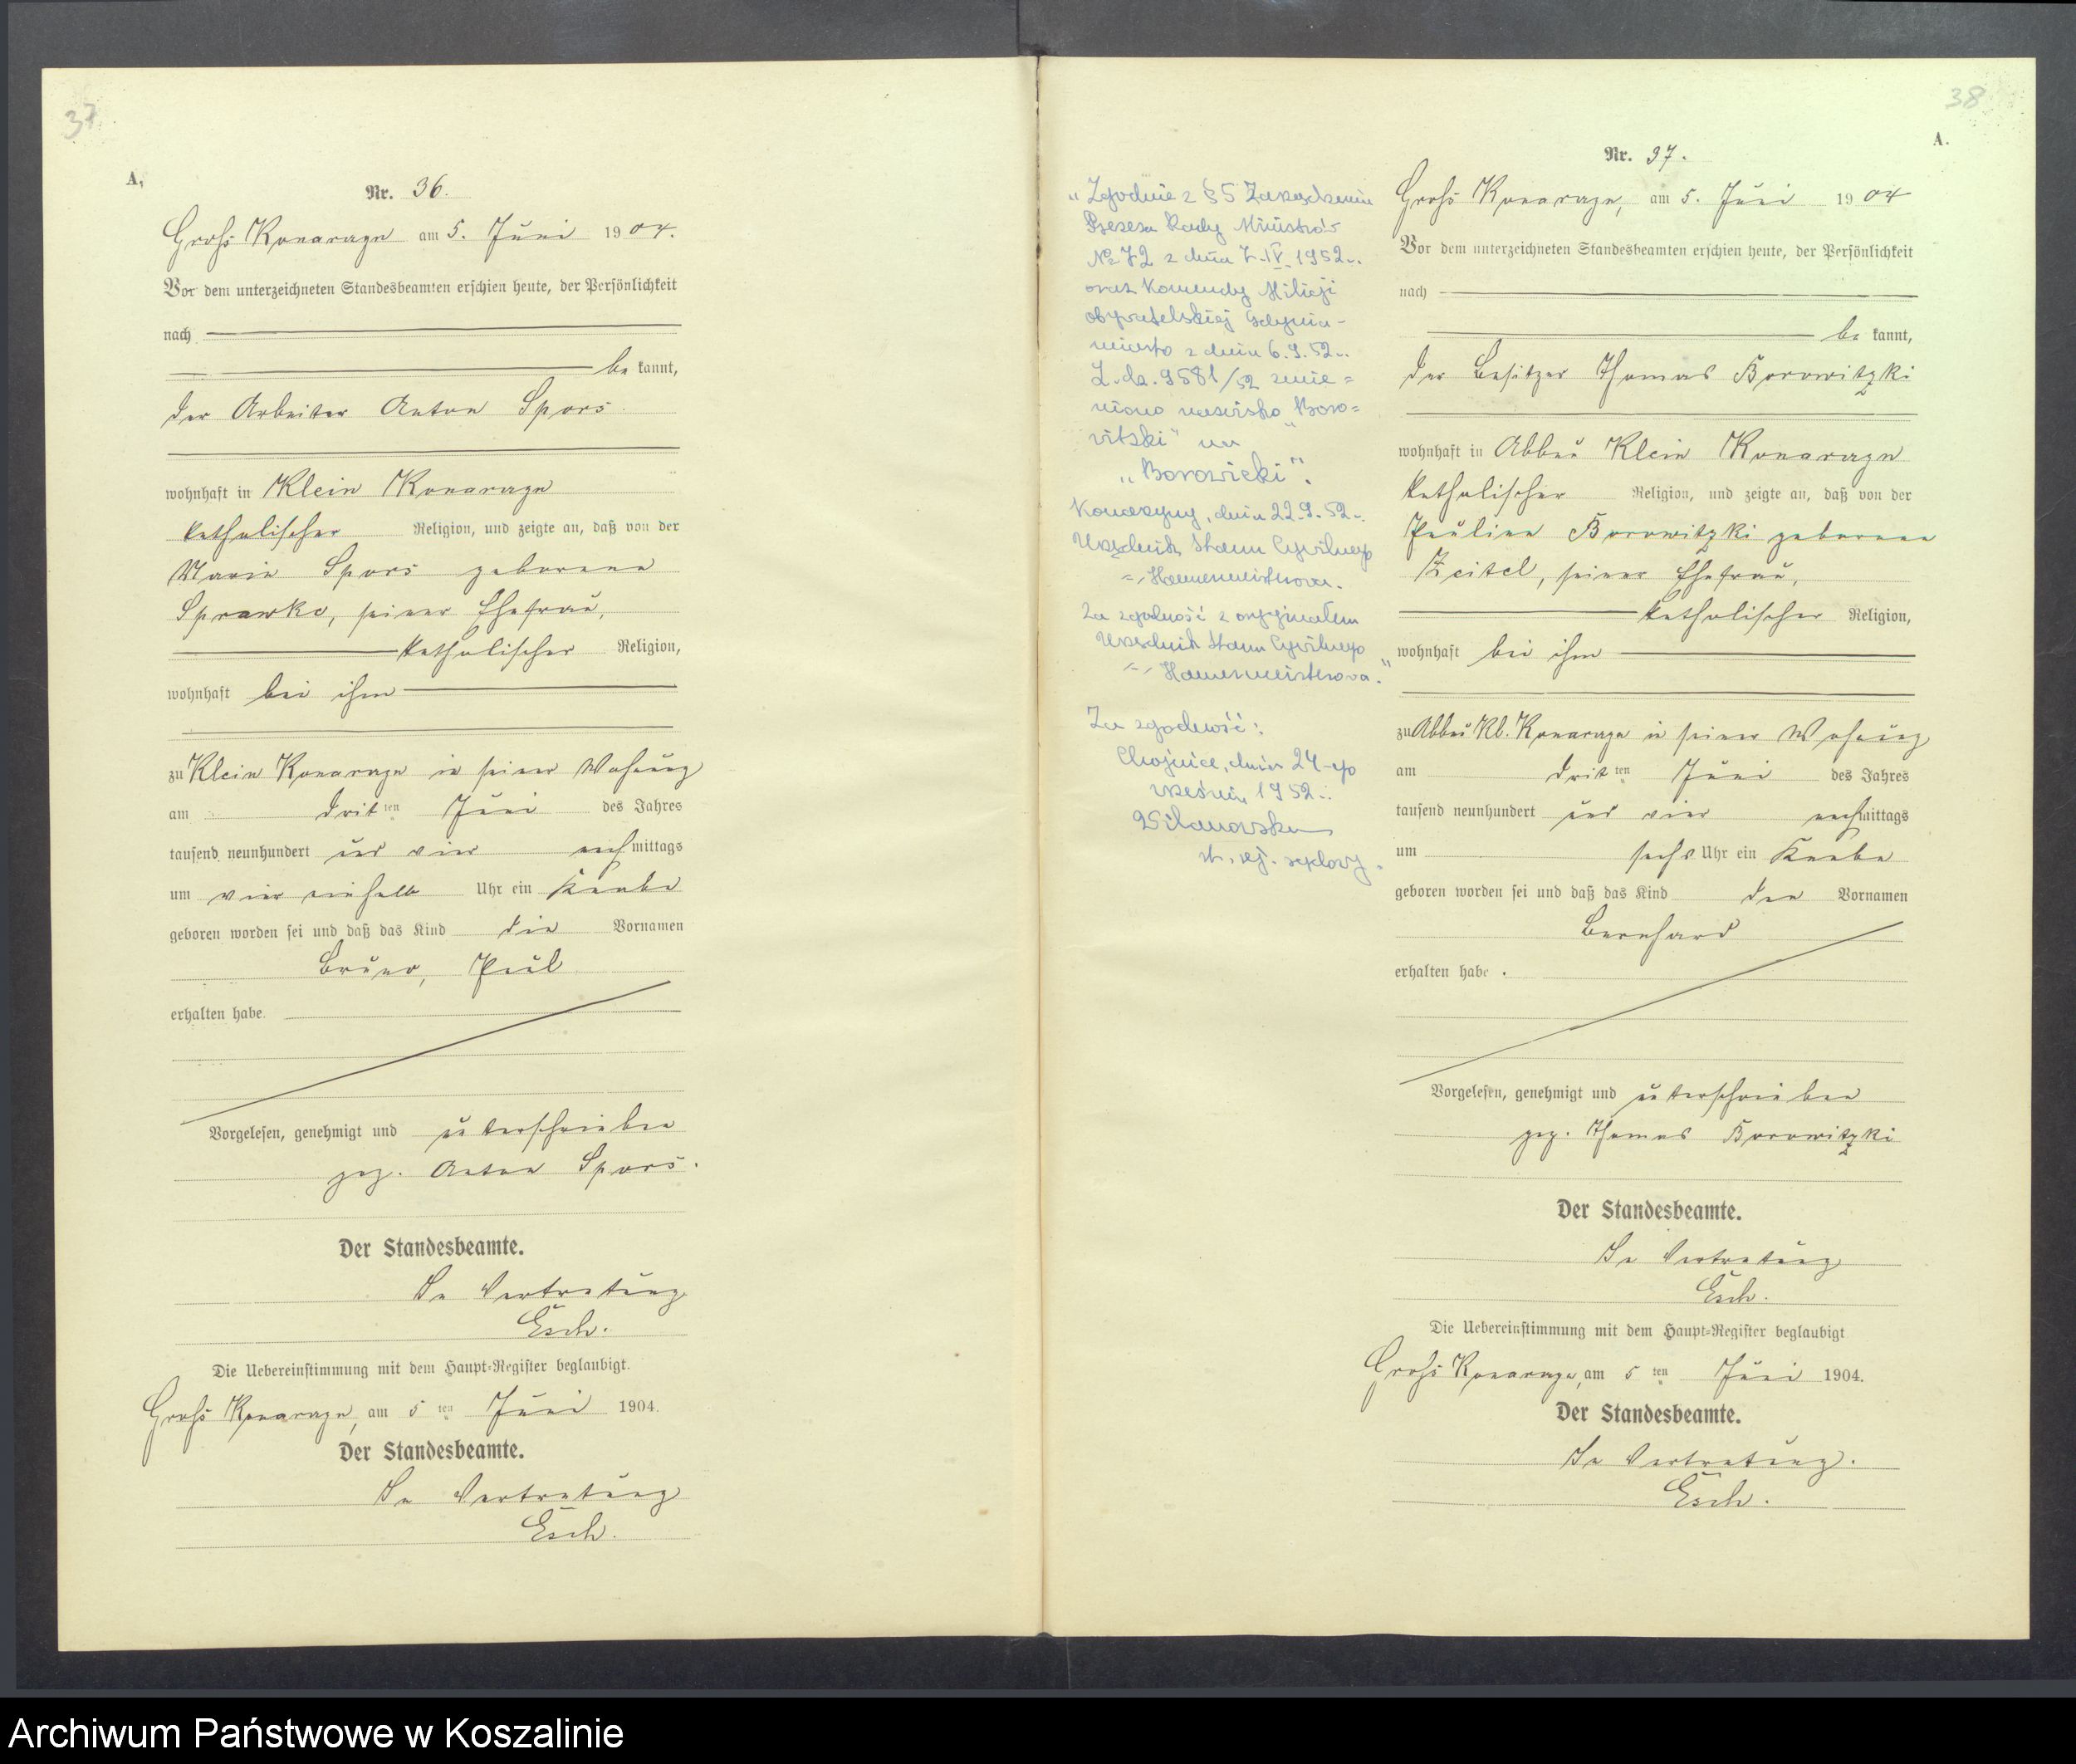 37
A.
Nr. 36.
Groß Konarczyn am 5. Juni 1904.
Vor dem unterzeichneten Standesbeamten erschien heute, der Persönlichkeit
nach
be kannt,
der Arbeiter Anton Spors
wohnhaft in Klein Konarczyn
katholischer Religion, und zeigte an, daß von der
Maria Spors geborene
seiner Ehefrau,
katholischer Religion,
wohnhaft bei ihm
zu Klein Konarczyn in seiner Wohnung
am dritten Juni des Jahres
tausend neunhundert und vier nachmittags
um vier einhalb Uhr ein Knabe
geboren worden sei und daß das Kind die Vornamen
Bruno, Paul
erhalten habe.
Vorgelesen, genehmigt und unterschrieben
gez. Anton Spors.
Der Standesbeamte.
In Vertretung
Esch.
Die Uebereinstimmung mit dem Haupt-Register beglaubigt.
Groß Konarczyn, am 5ten Juni 1904.
Der Standesbeamte.
In Vertretung
Esch.
38
A.
„Zgodnie z § 5 Zarządzenia
Prezesa Rady Ministrów
№ 72 z dnia 7.IV.1952r.
oraz Komendy Milicji
obywatelskiej Gdynia-
miasto z dnia 6.9.52r.
L.dz. 9581/52 zmie=
niono nazwisko „Boro=
vitzki" na
„Borowicki".
Konarzyny, dnia 22.9.52r.
Urzędnik Stanu Cywilnego
Za zgodność z oryginałem
Urzędnik Stanu Cywilnego
Za zgodność:
Chojnice, dnia 24-go
września 1952r.
Nr. 37.
Groß Konarczyn, am 5. Juni 1904
Vor dem unterzeichneten Standesbeamten erschien heute, der Persönlichkeit
nach
be kannt,
der Besitzer Thomas Borowitzki
wohnhaft in Abbau Klein Konarczyn
katholischer Religion, und zeigte an, daß von der
Pauline Borowitzki geborene
seiner Ehefrau,
katholischer Religion,
wohnhaft bei ihm
zu Abbau Kl. Konarczyn in seiner Wohnung
am dritten Juni des Jahres
tausend neunhundert und vier nachmittags
um sechs Uhr ein Knabe
geboren worden sei und daß das Kind den Vornamen
Bernhard
erhalten habe.
Vorgelesen, genehmigt und unterschrieben
gez. Thomas Borowitzki
Der Standesbeamte.
In Vertretung
Esch.
Die Uebereinstimmung mit dem Haupt-Register beglaubigt
Groß Konarczyn, am 5ten Juni 1904.
Der Standesbeamte.
In Vertretung.
Esch.
Archiwum Państwowe w Koszalinie